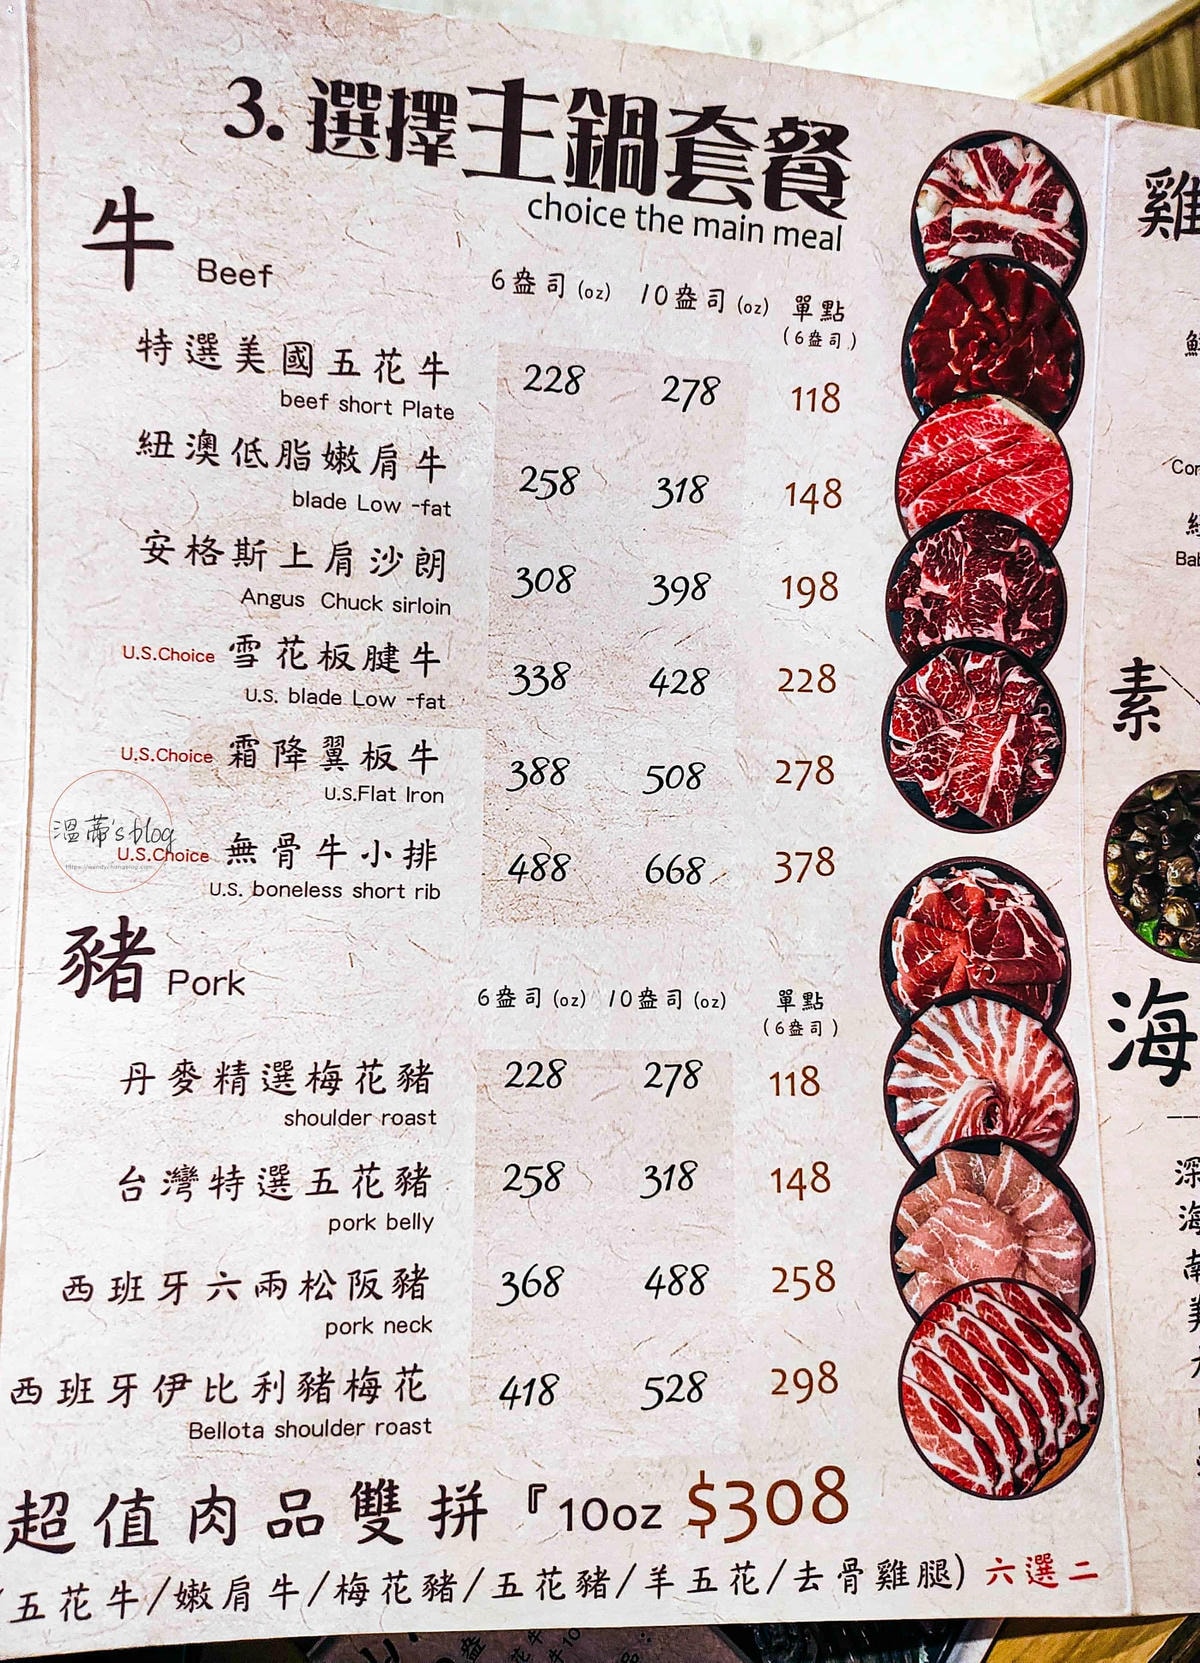 3. 選擇主鍋套餐
choice the main meal
牛 Beef
6盎司 (oz) 10盎司 (oz) 單點
(6盎司)
特選美國五花牛 228 278 118
beef short Plate
紐澳低脂嫩肩牛 258 318 148
blade Low -fat
安格斯上肩沙朗 308 398 198
Angus Chuck sirloin
U.S.Choice 雪花板腱牛 338 428 228
U.S. blade Low -fat
U.S.Choice 霜降翼板牛 388 508 278
U.S.Flat Iron
溫蒂's blog
U.S.Choice 無骨牛小排 488 668 378
U.S. boneless short rib
豬 Pork
6盎司 (oz) 10盎司 (oz) 單點
(6盎司)
丹麥精選梅花豬 228 278 118
shoulder roast
台灣特選五花豬 258 318 148
pork belly
西班牙六兩松阪豬 368 488 258
pork neck
西班牙伊比利豬梅花 418 528 298
Bellota shoulder roast
超值肉品雙拼『10oz $308
(五花牛/嫩肩牛/梅花豬/五花豬/羊五花/去骨雞腿) 六選二
雞
素
海
深
海